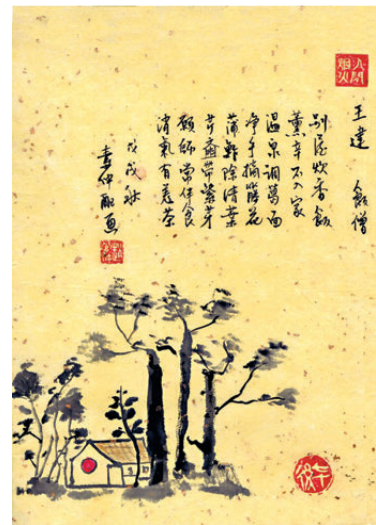 人間烟火
王建 飯僧
别屋炊香飯
薰辛不入家
温泉調葛面
净手摘藤花
蒲鮓除清葉
芹齑带紫芽
願師常伴食
消氣有姜茶
戊戌秋
画